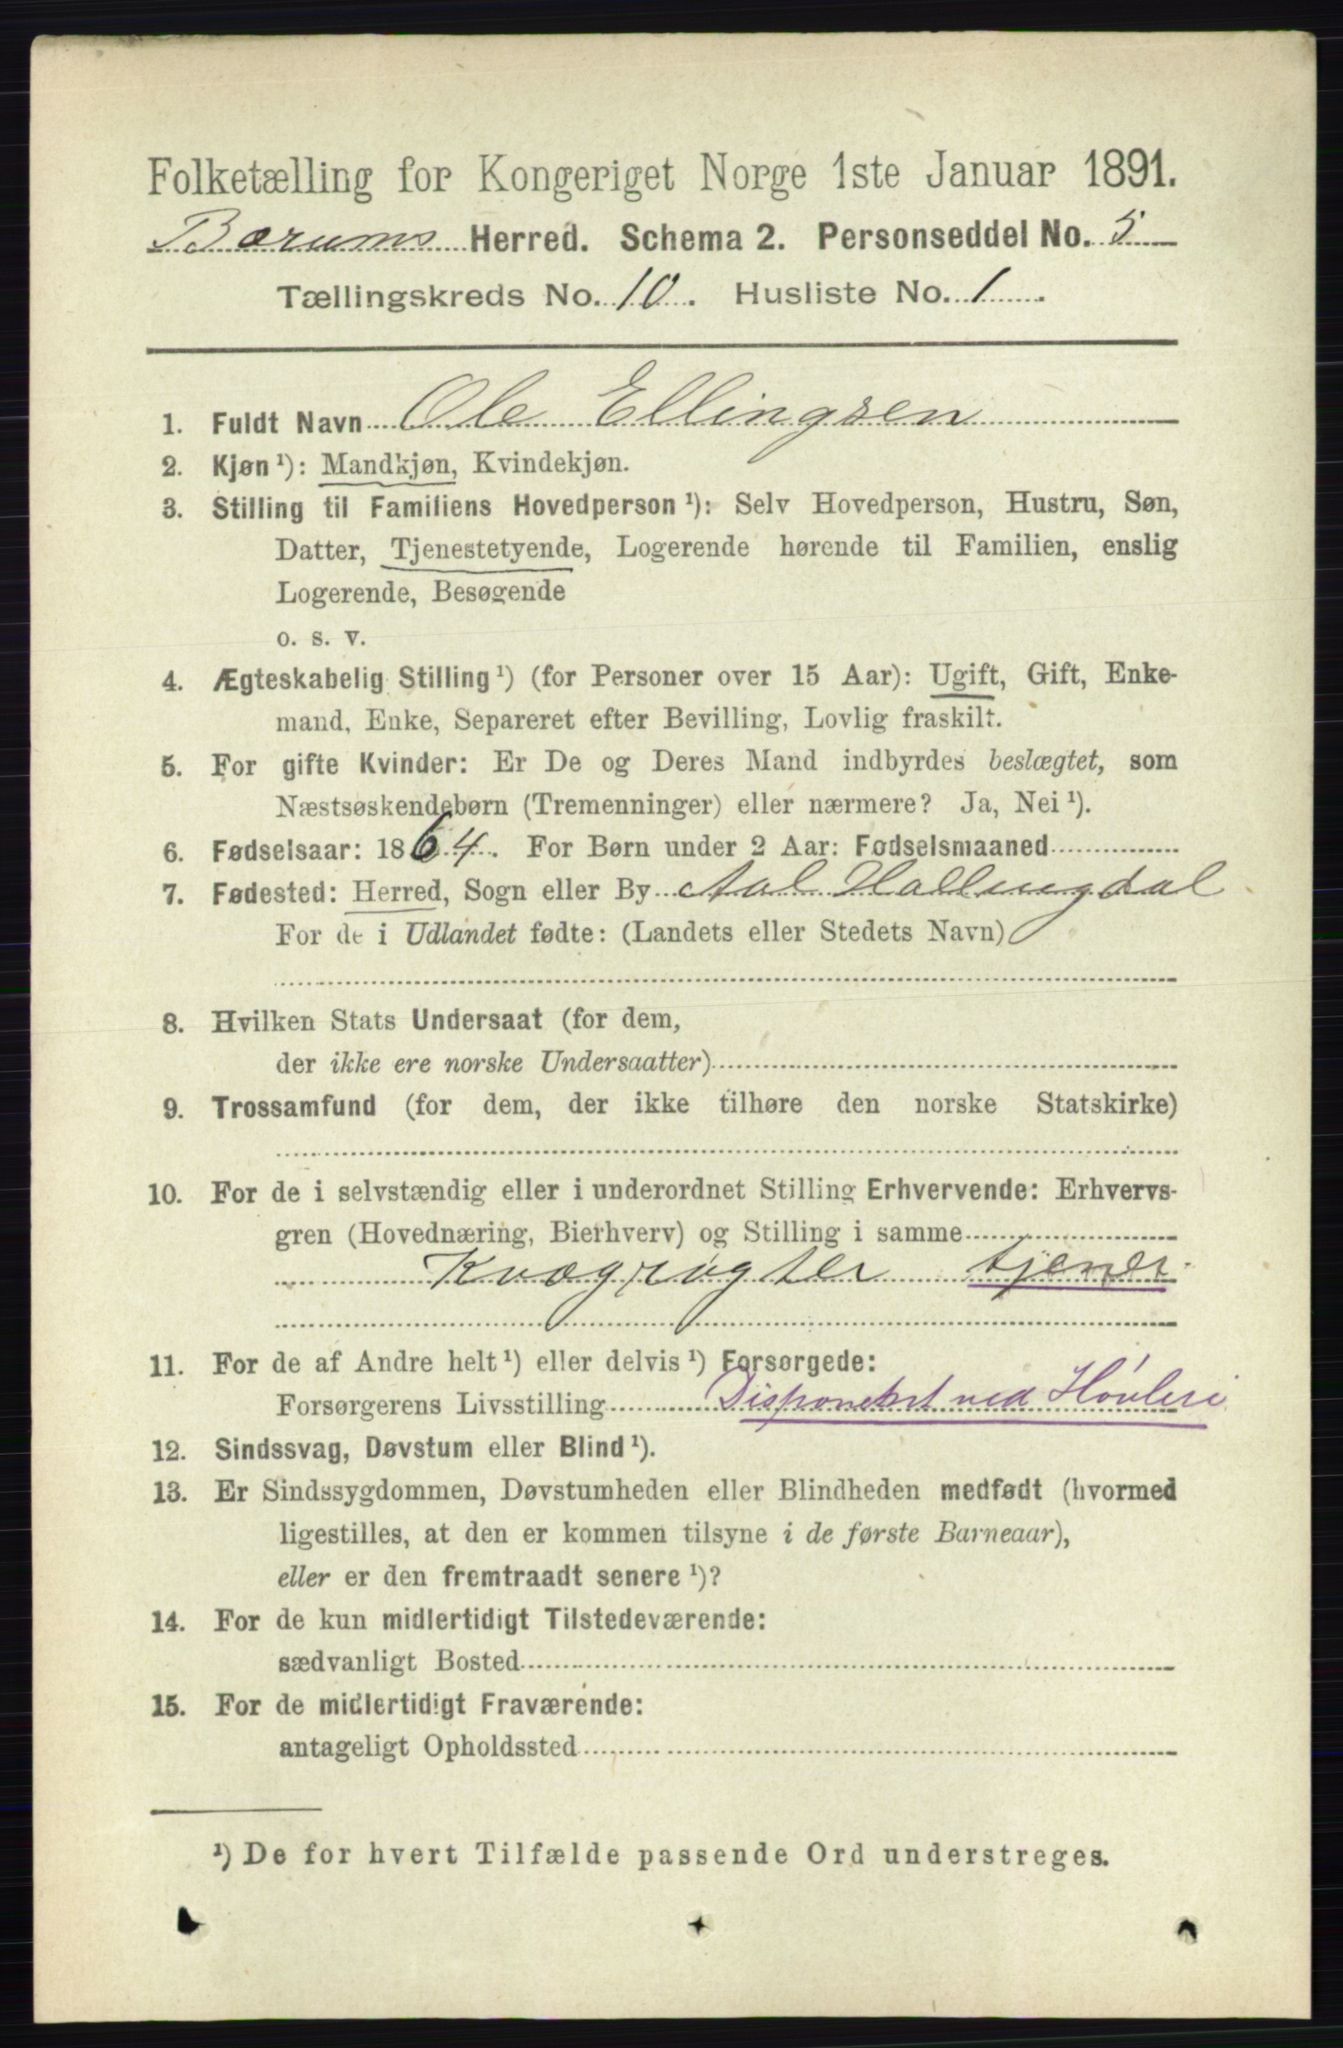 Folketælling for Kongeriget Norge 1ste Januar 1891.
Bærums Herred. Schema 2. Personseddel No. 5
Tællingskreds No. 10. Husliste No. 1.
1. Fuldt Navn Ole Ellingsen
2. Kjøn ¹): Mandkjøn, Kvindekjøn.
3. Stilling til Familiens Hovedperson ¹): Selv Hovedperson, Hustru, Søn,
Datter, Tjenestetyende, Logerende hørende til Familien, enslig
Logerende, Besøgende
o. s. v.
4. Ægteskabelig Stilling ¹) (for Personer over 15 Aar): Ugift, Gift, Enke-
mand, Enke, Separeret efter Bevilling, Lovlig fraskilt.
5. For gifte Kvinder: Er De og Deres Mand indbyrdes beslægtet, som
Næstsøskendebørn (Tremenninger) eller nærmere? Ja, Nei ¹).
6. Fødselsaar: 1864. For Børn under 2 Aar: Fødselsmaaned
7. Fødested: Herred, Sogn eller By Aal Hallingdal
For de i Udlandet fødte: (Landets eller Stedets Navn)
8. Hvilken Stats Undersaat (for dem,
der ikke ere norske Undersaatter)
9. Trossamfund (for dem, der ikke tilhøre den norske Statskirke)
10. For de i selvstændig eller i underordnet Stilling Erhvervende: Erhvervs-
gren (Hovednæring, Bierhverv) og Stilling i samme
Kvægrøgter tjener
11. For de af Andre helt ¹) eller delvis ¹) Forsørgede:
Forsørgerens Livsstilling Disponent ved Høvleri
12. Sindssvag, Døvstum eller Blind ¹).
13. Er Sindssygdommen, Døvstumheden eller Blindheden medfødt (hvormed
ligestilles, at den er kommen tilsyne i de første Barneaar),
eller er den fremtraadt senere ¹)?
14. For de kun midlertidigt Tilstedeværende:
sædvanligt Bosted
15. For de midlertidigt Fraværende:
antageligt Opholdssted
¹) De for hvert Tilfælde passende Ord understreges.